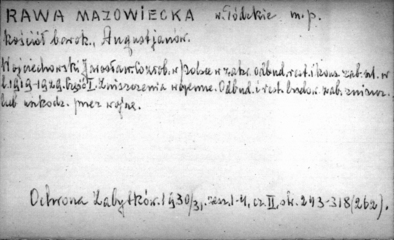 RAWA MAZOWIECKA w. łódzkie m.p.
kościół barok., Augustjanów.
Wojciechowski Jarosław: Co zrob. w Polsce w zakr. odbud. rest. i kons. zab. szt. w
l. 1919-1929. Część I. Zniszczenia wojenne. Odbud. i rest. budow. zab. zniszcz.
lub uszkodz. przez wojnę.
Ochrona Zabytków. 1930/31, zesz. 1-4, cz. II, str. 243-318 (262).